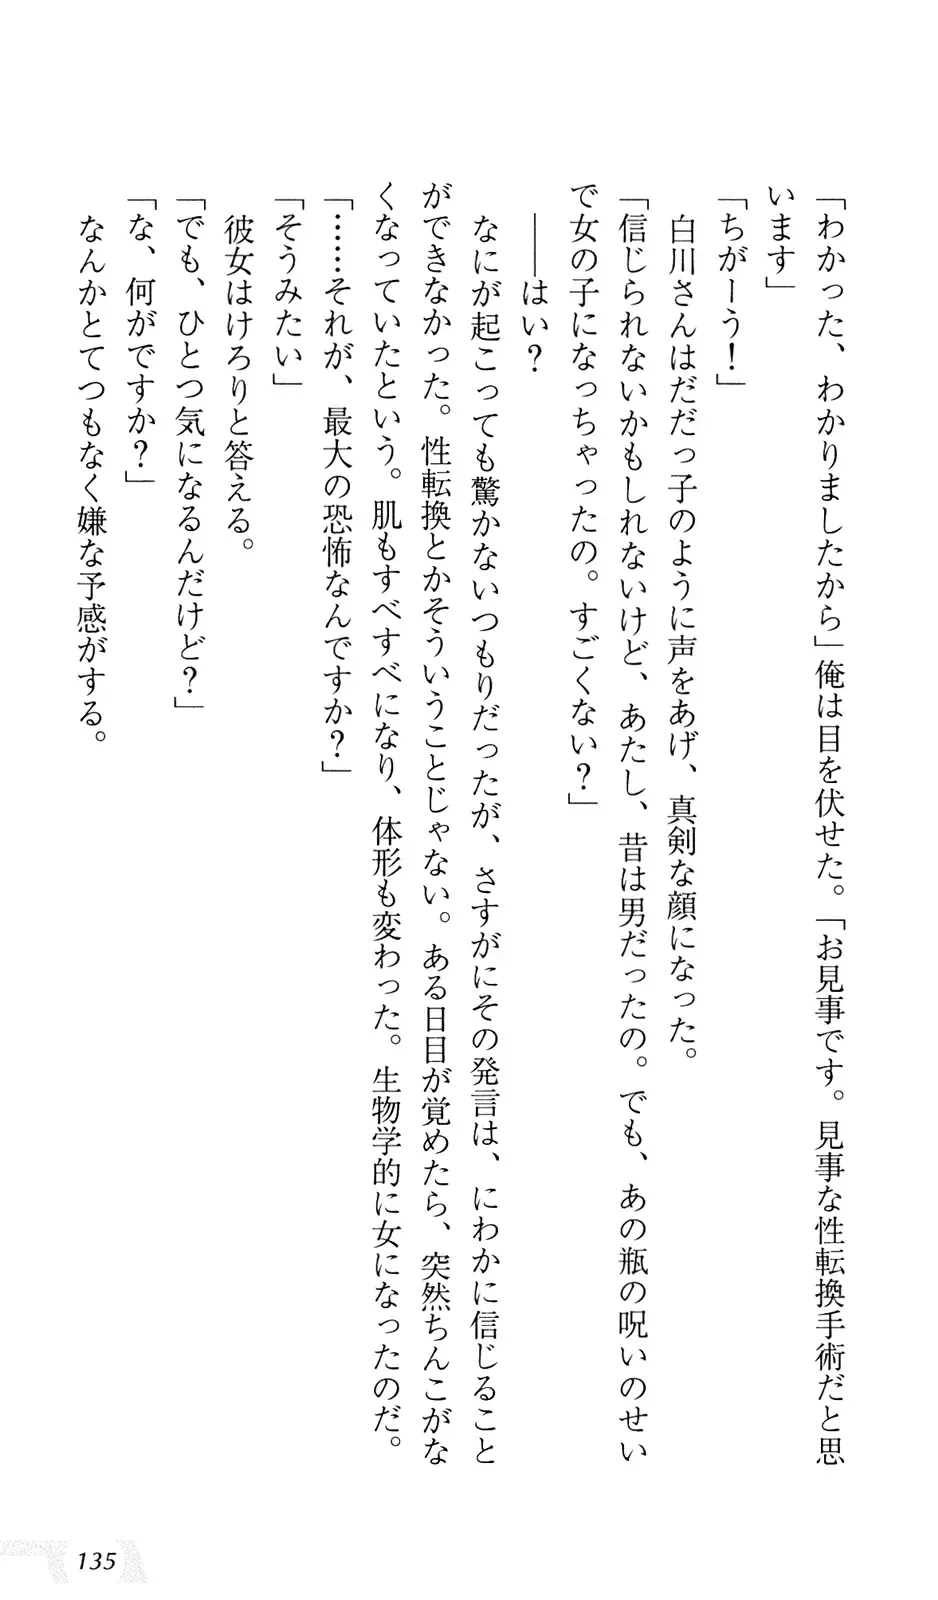 「わかった、わかりましたから」俺は目を伏せた。「お見事です。見事な性転換手術だと思
います」
「ちがーう！」
白川さんはだだっ子のように声をあげ、真剣な顔になった。
「信じられないかもしれないけど、あたし、昔は男だったの。でも、あの瓶の呪いのせい
で女の子になっちゃったの。すごくない？」
――はい？
なにが起こっても驚かないつもりだったが、さすがにその発言は、にわかに信じること
ができなかった。性転換とかそういうことじゃない。ある日目が覚めたら、突然ちんこがな
くなっていたという。肌もすべすべになり、体形も変わった。生物学的に女になったのだ。
「……それが、最大の恐怖なんですか？」
「そうみたい」
彼女はけろりと答える。
「でも、ひとつ気になるんだけど？」
「な、何がですか？」
なんかとてつもなく嫌な予感がする。
135